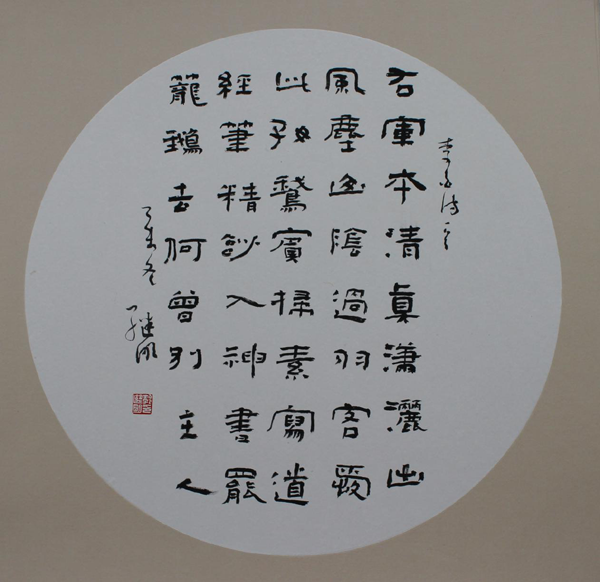 李白诗一首
右軍本清真瀟灑出
風塵山陰過羽客愛
此好鵞賓掃素寫道
經筆精妙入神書罷
籠鵝去何曾別主人
未冬 继